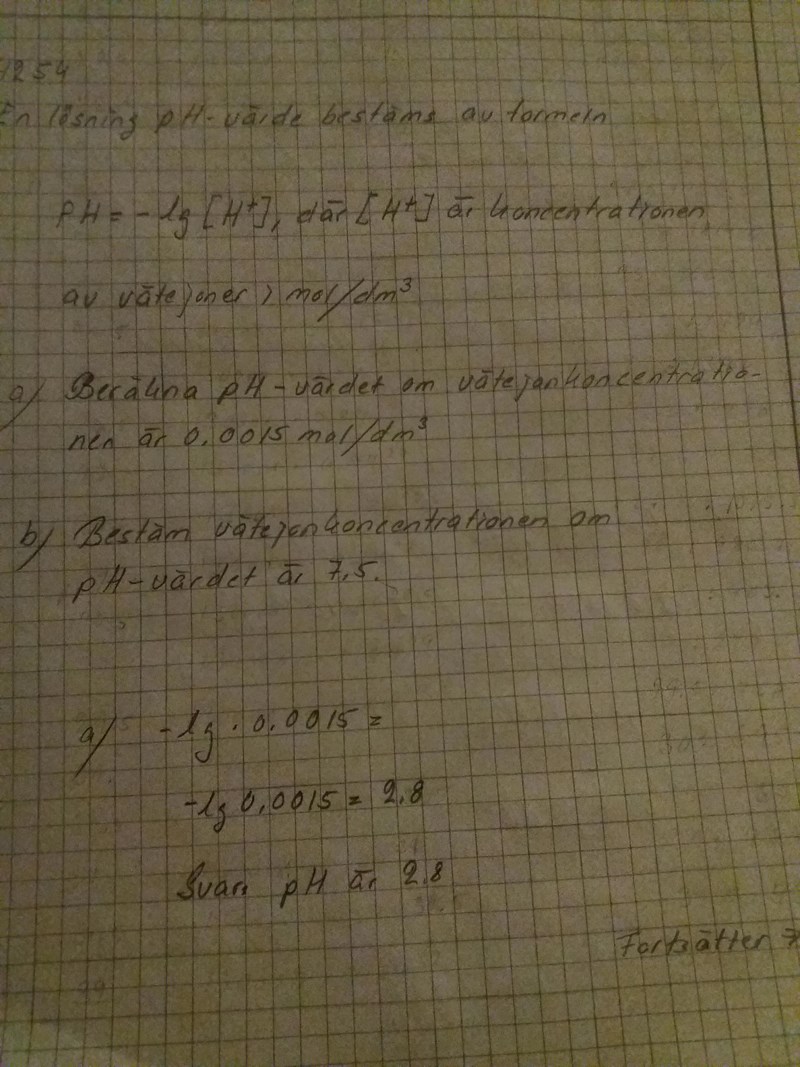 1254
En lösning pH-värde bestäms av formeln
PH = -lg [H+], där [H+] är koncentrationen
av vätejoner i mol/dm³
a) Beräkna pH-värdet om vätejonkoncentratio-
nen är 0,0015 mol/dm³
b) Bestäm vätejonkoncentrationen om
pH-värdet är 7,5.
a) -lg . 0,0015 =
-lg 0,0015 = 2,8
Svar: pH är 2,8
Fortsätter